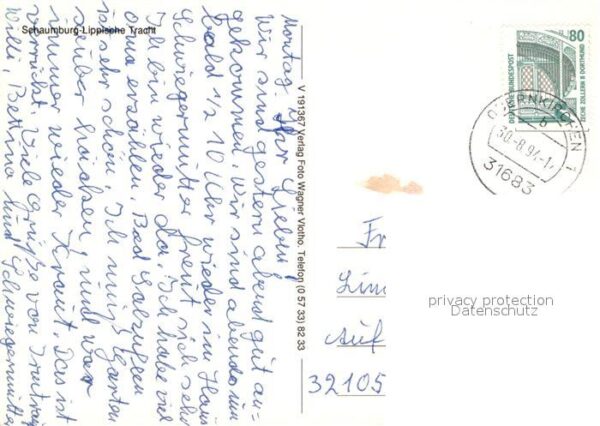 Schaumburg-Lippische Tracht
Montag. Ihr Lieben!
Wir sind gestern abend gut an-
gekommen. Wir sind abends um
bald 1/2 10 Uhr wieder im Haus
Schwiegermutter freut sich sehr
Ich bin wieder da. Ich habe viel
erzählen. Bad Salzuflen
ist sehr schön. Ich muß Garten
sauber machen, und war
immer wieder Kraut. Das ist
verrückt. Viele Grüße von
Willi, und Schwiegermutter
V 191367 Verlag Foto Wagner Vlotho. Telefon (0 57 33) 82 33
80
DEUTSCHE BUNDESPOST
ZECHE ZOLLERN II DORTMUND
OBERNKIRCHEN 1
b
30.-8.94-1
31683
Fr
Lim
Auf
32105
privacy protection
Datenschutz